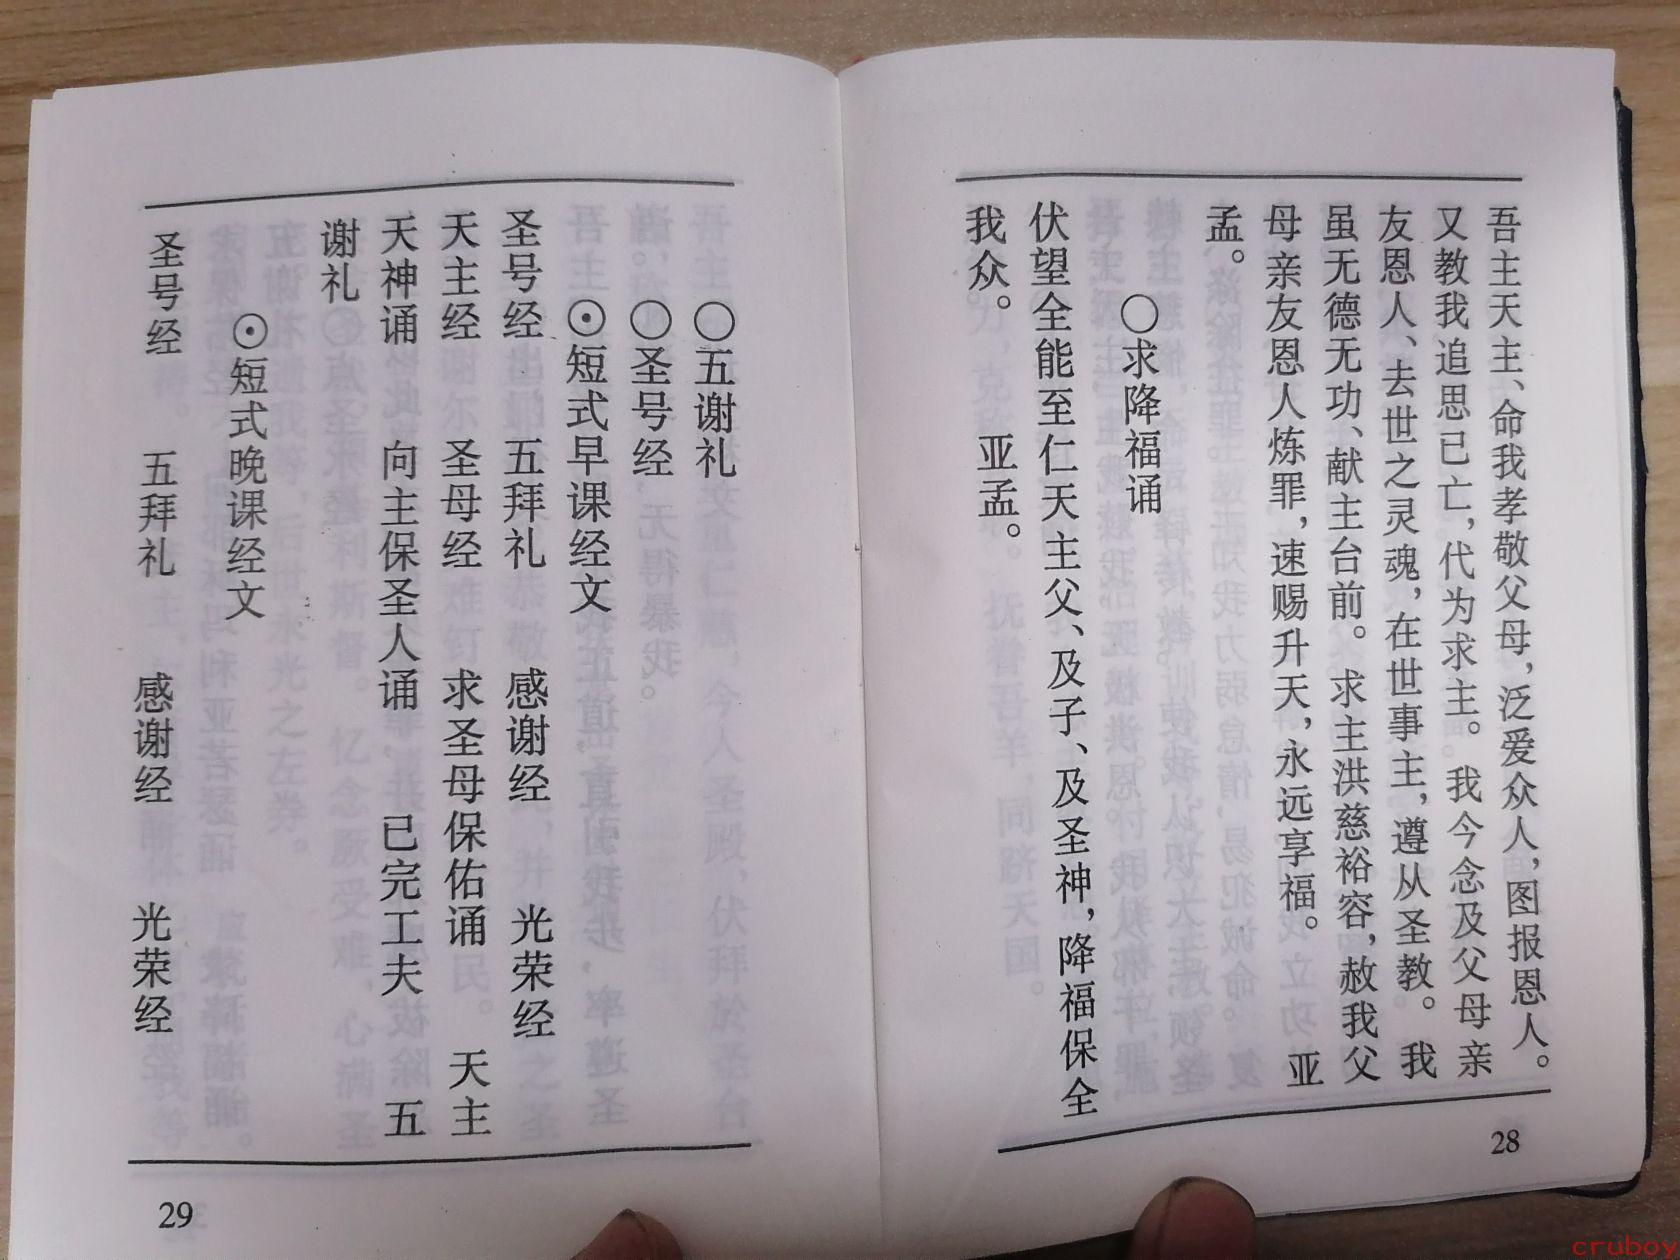 吾主天主、命我孝敬父母，泛爱众人，图报恩人。
又教我追思已亡，代为求主。我今念及父母亲
友恩人、去世之灵魂，在世事主，遵从圣教。我
虽无德无功、献主台前。求主洪慈裕容，赦我父
母亲友恩人炼罪，速赐升天，永远享福。 亚
孟。
○求降福诵
伏望全能至仁天主父、及子、及圣神，降福保全
我众。 亚孟。
28
○五谢礼
○圣号经
⊙短式早课经文
圣号经 五拜礼 感谢经 光荣经
天主经 圣母经 求圣母保佑诵 天主
天神诵 向主保圣人诵 已完工夫 五
谢礼
⊙短式晚课经文
圣号经 五拜礼 感谢经 光荣经
29
cruboy